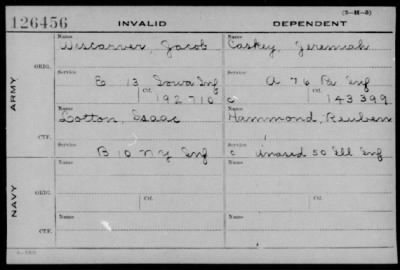 (3-H-5)
126456 INVALID DEPENDENT
Name Name
Wiscarver, Jacob Caskey, Jeremiah
ORIG.
Service Service
E 13 Iowa Inf A 76 Pa Inf
Ctf. 192710 Ctf. 143399
ARMY
Name Name
Lotton, Isaac Hammond, Reuben
CTF.
Service Service
B 10 NY Inf C Unasgd 50 Ill Inf
Name Name
ORIG.
Service Ctf. Service Ctf.
NAVY
Name Name
CTF.